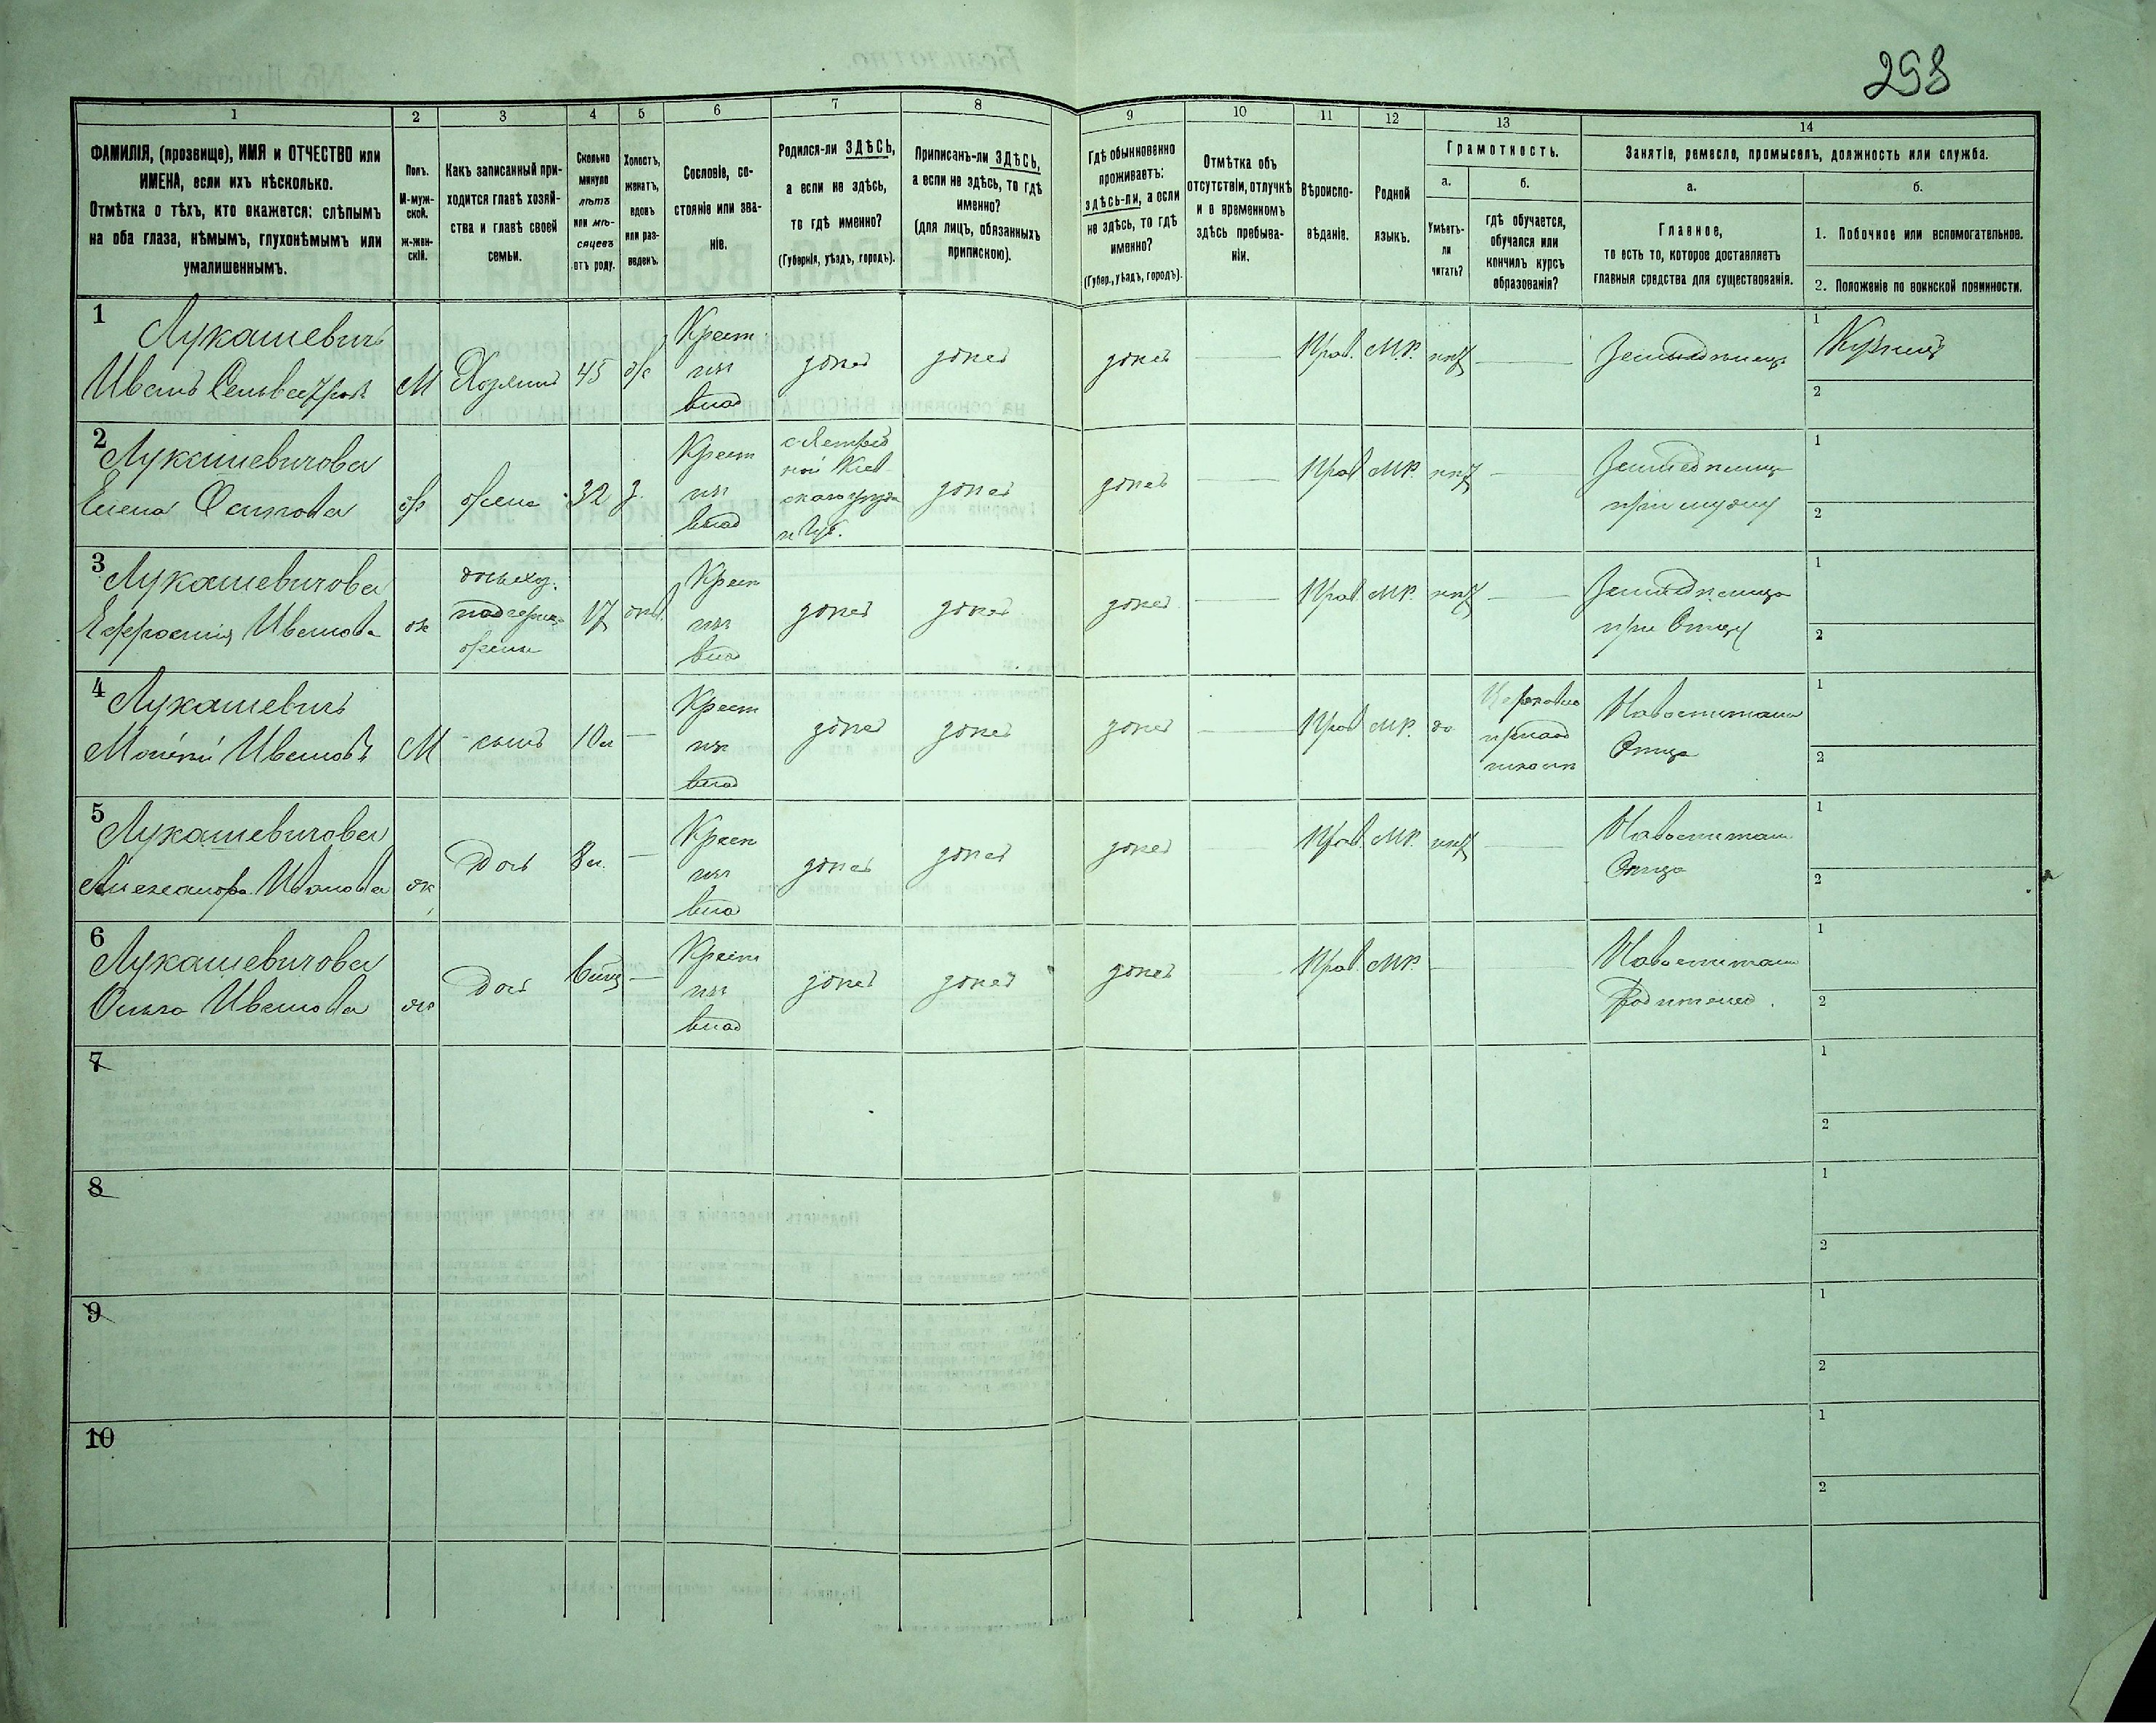 298
1
2
3
4
5
6
7
8
9
10
11
12
13
14
ФАМИЛІЯ, (прозвище), ИМЯ и ОТЧЕСТВО или
ИМЕНА, если ихъ нѣсколько.
Отмѣтка о тѣхъ, кто окажется: слѣпымъ
на оба глаза, нѣмымъ, глухонѣмымъ или
умалишеннымъ.
Полъ.
М-муж-
ской.
ж-жен-
скій.
Какъ записанный при-
ходится главѣ хозяй-
ства и главѣ своей
семьи.
Сколько
минуло
лѣтъ
или мѣ-
сяцевъ
отъ роду.
Холостъ,
женатъ,
вдовъ
или раз-
веденъ.
Сословіе, со-
стояніе или зва-
ніе.
Родился-ли ЗДѢСЬ,
а если не здѣсь,
то гдѣ именно?
(Губернія, уѣздъ, городъ).
Приписанъ-ли ЗДѢСЬ,
а если не здѣсь, то гдѣ
именно?
(для лицъ, обязанныхъ
припискою).
Гдѣ обыкновенно
проживаетъ:
здѣсь-ли, а если
не здѣсь, то гдѣ
именно?
(Губер., уѣздъ, городъ).
Отмѣтка объ
отсутствіи, отлучкѣ
и о временномъ
здѣсь пребыва-
ніи.
Вѣроиспо-
вѣданіе.
Родной
языкъ.
Грамотность.
а.
б.
Умѣетъ-
ли
читать?
гдѣ обучается,
обучался или
кончилъ курсъ
образованія?
Занятіе, ремесло, промыселъ, должность или служба.
а.
б.
Главное,
то есть то, которое доставляетъ
главныя средства для существованія.
1. Побочное или вспомогательное.
2. Положеніе по воинской повинности.
1
Лукашевичъ
Иванъ Сельвестровъ
М
Хозяинъ
45
ж
Крест
изъ
влад
здѣсь
здѣсь
здѣсь
Прав.
М.Р.
нѣтъ
Земледѣлецъ
1
Кузнецъ
2
2
Лукашевичова
Елена Осипова
ж
жена
32
з.
Крест
изъ
влад
здѣсь
здѣсь
Прав
М.Р.
нѣтъ
Земледѣлец
при мужу
1
2
3
Лукашевичова
Ефросинія Иванова
ж
дочь хоз.
падчериц.
жены
17
Крест
изъ
влад
здѣсь
здѣсь
здѣсь
Прав
М.Р.
нѣтъ
Земледѣлица
при Отцу
1
2
4
Лукашевичъ
Иванов
М
сынъ
10 л
Крест
изъ
влад
здѣсь
здѣсь
здѣсь
Прав
М.Р.
да
Церковно
приход
школѣ
На воспитаніи
Отца
1
2
5
Лукашевичова
Александра Иванова
ж
Дочь
8 л.
Крест
изъ
влад
здѣсь
здѣсь
здѣсь
Прав.
М.Р.
нѣтъ
На воспитан
Отца
1
2
6
Лукашевичова
Ольга Иванова
ж
Дочь
Крест
изъ
влад
здѣсь
здѣсь
здѣсь
Прав.
М.Р.
На воспитан
Родителей.
1
2
7
1
2
8
1
2
9
1
2
10
1
2